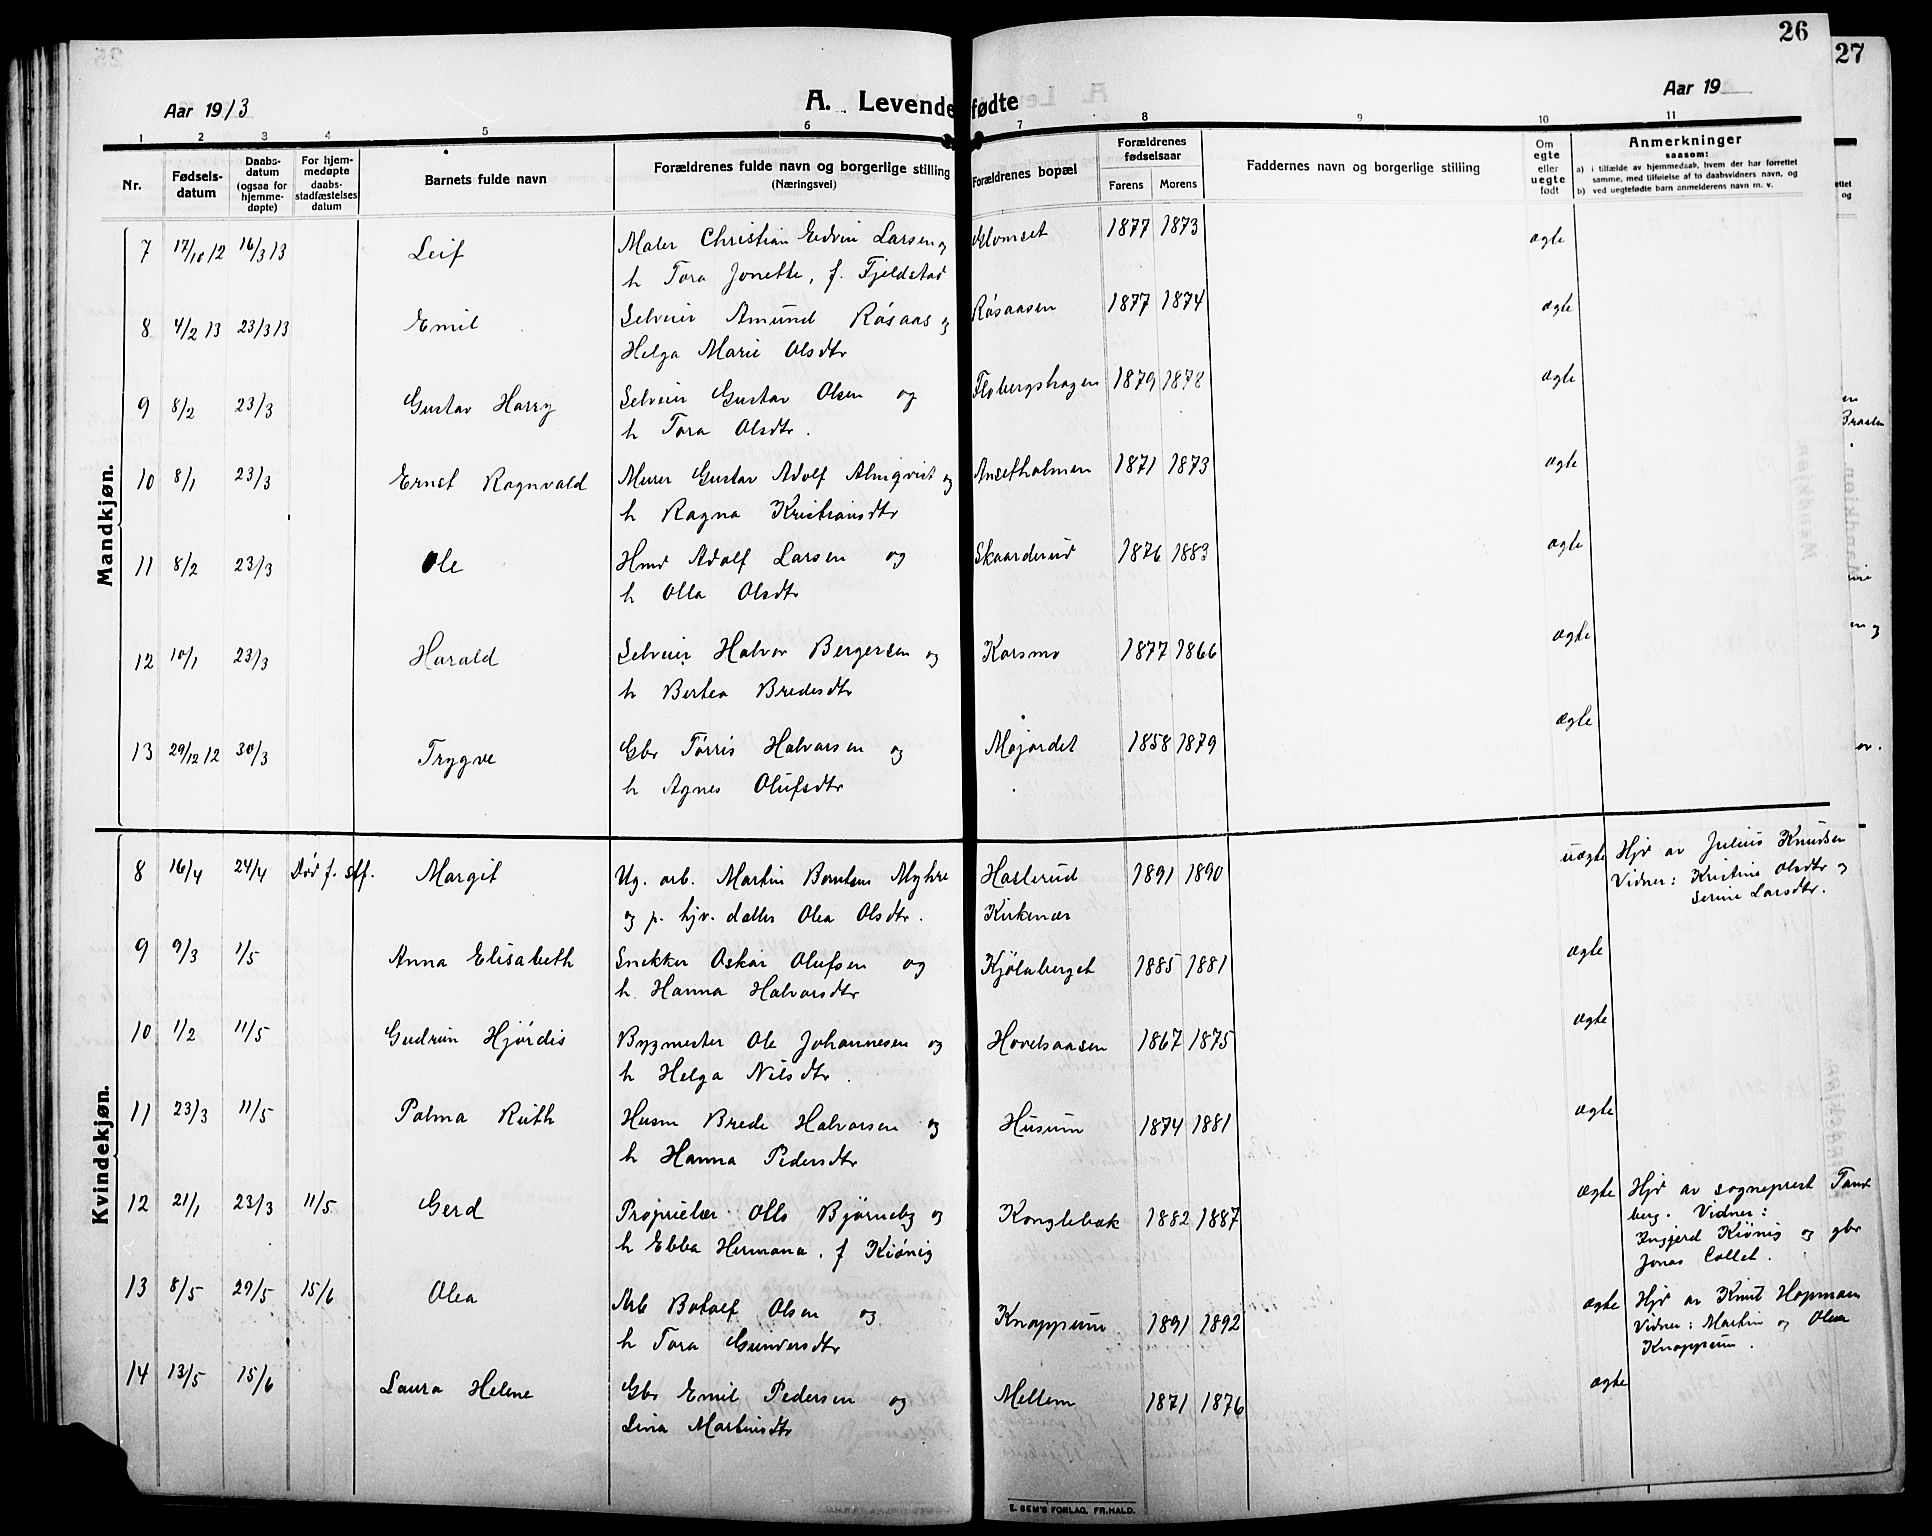 26
27
Aar 1913
A. Levende fødte
Aar 19
1 2 3 4 5 6 7 8 9 10 11
Nr.
Fødsels-
datum
Daabs-
datum
(ogsaa for
hjemme-
døpte)
For hjem-
medøpte
daabs-
stadfæstelses
datum
Barnets fulde navn
Forældrenes fulde navn og borgerlige stilling
(Næringsvei)
Forældrenes bopæl
Forældrenes
fødselsaar
Farens Morens
Faddernes navn og borgerlige stilling
Om
egte
eller
uegte
født
Anmerkninger
saasom:
a) i tilfælde av hjemmedaab, hvem der har forrettet
samme, med tilføielse af to daabsvidners navn, og
b) ved uegtefødte barn anmelderens navn m. v.
Mandkjøn.
7 17/10 12 16/3 13 Leif Maler Christian Edvin Larsen og Glomset 1877 1873 ægte
h Tora Jonette, f. Fjeldstad
8 4/2 13 23/3 13 Emil Selveier Amund Røsaas og Røsaasen 1877 1874 ægte
Helga Marie Olsdtr
9 8/2 23/3 Gustav Harry Selveier Gustav Olsen og Flobergshagen 1879 1878 ægte
h Tora Olsdtr.
10 8/1 23/3 Ernst Ragnvald Murer Gustav Adolf Almqvist og Ansetholmen 1871 1873 ægte
h Ragna Kristiansdtr
11 8/2 23/3 Ole Hmd Adolf Larsen og Skaarderud 1876 1883 ægte
h Olla Olsdtr
12 10/1 23/3 Harald Selveier Halvor Bergersen og Korsmo 1877 1866 ægte
h Bertea Bredesdtr
13 29/12 12 30/3 Trygve Gbr Tørris Halvorsen og Mojordet 1858 1879 ægte
h Agnes Olufsdtr
Kvindekjøn.
8 16/4 24/4 Død f. stf. Margit Ug. arb. Martin Berntsen Myhre Haslerud 1891 1890 uægte Hjd av Julius Knudsen
og p. hjv. datter Olea Olsdtr. Kirkenær Vidner: Kristine Olsdtr og
Serine Larsdtr.
9 9/3 1/5 Anna Elisabeth Snekker Oskar Olufsen og Kjölaberget 1885 1881 ægte
h. Hanna Halvorsdtr
10 1/2 11/5 Gudrun Hjørdis Bygmester Ole Johannesen og Hovelsaasen 1867 1875 ægte
h Helga Nilsdtr.
11 23/3 11/5 Palma Ruth Husm Brede Halvorsen og Husum 1874 1881 ægte
h Hanna Pedersdtr
12 21/1 23/3 11/5 Gerd Proprietær Otto Bjørneby og Konglebæk 1882 1887 ægte Hjd av sogneprest Tand
h Ebba Hermana, f Kiønig berg. Vidner:
Ingjerd Kiønig og gbr
Jonas Collet.
13 8/5 29/5 15/6 Olea Arb Botolf Olsen og Knappum 1891 1892 ægte Hjd av Knut Hopman
h Tora Gundersdtr Vidner: Martin og Olea
Knappum.
14 13/5 15/6 Laura Helene Gbr Emil Pedersen og Mellem 1871 1876 ægte
Lina Martinsdtr
E. SEM'S FORLAG, FR.HALD.